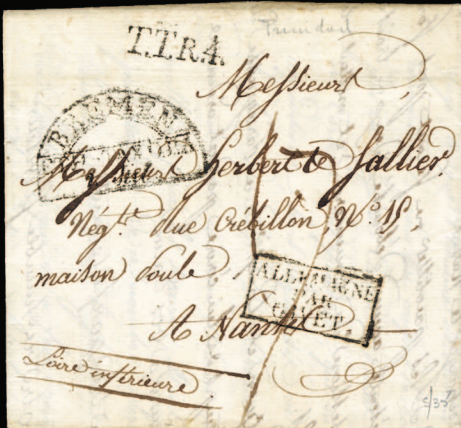 Trinidad
T.T.R.4.
Messieurs
BREMEN
Messieurs Herbert & Sallier,
Négts. rue Crébillon, No. 15,
maison Soulé
ALLEMAGNE
PAR
GIVET.
A Nantes
Loire inférieure.